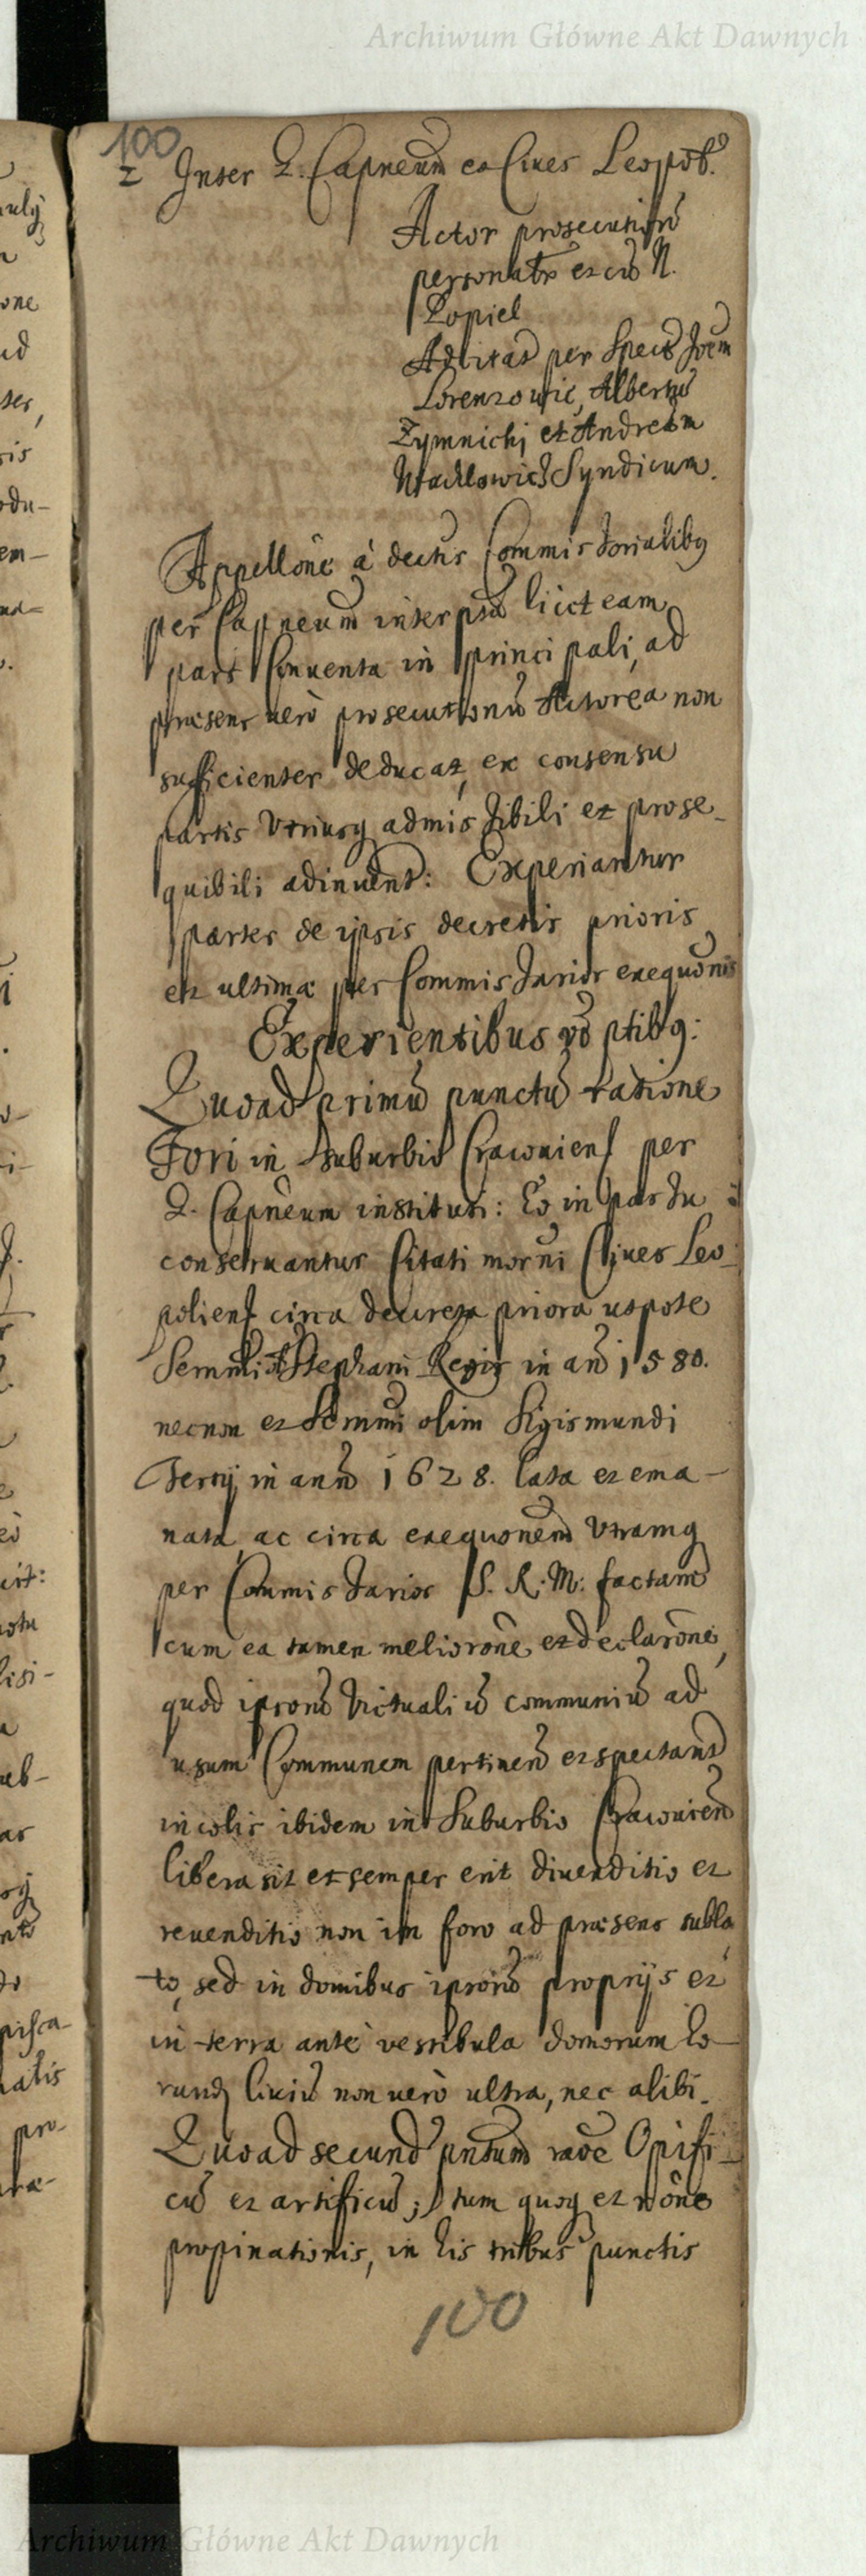 Archiwum Główne Akt Dawnych
100
2 Inter G. Capneum et Ciues Leopoł.
Actor prosecutionū
personatr et cū N.
Popiel
Adcitať per Spect Joem
Lorenzowic, Albertū
Zymnichi et Andream
Wachlowicz Syndicum.
Appellōne à decretis Commissorialibq
per Capneum interpsā licet eam
pars Conuenta in principali, ad
præsens uerò prosecutionū Actorea non
sufficienter deducat, ex consensu
partis Vtriusq admissibili et prose-
quibili adinuent: Experiantur
partes de ipsis decretis prioris
et ultimæ per Commissarior exequōnis
Experientibus vō ptibq:
Quoad primū punctū ratione
Fori in suburbio Cracouiens per
G. Capneum instituti: Eo in passu
conseruantur Citati morni Ciues Leo-
poliens circa decreta priora utpote
Sermi Stephani Regis in añ 1580.
necnon et Sermi olim Sigismundi
Tertij in anñ 1628. lata et ema-
nata, ac circa exequonem Vtramq
per Commissarios S. R. M: factam
cum ea tamen meliorōne et declarōne,
quod iprorū Victualiū communiū ad
usum Communem pertineñ et spectanť
incolis ibidem in Suburbio Cracouieñ
libera sit et semper erit diuenditio et
reuenditio non in foro ad præsens subla
to, sed in domibus iprorū proprijs et
in terra antè vestibula domorum eo-
rund ciuiū non uerò ultra, nec alibi.
Quoad secund pntum raōe Opifi-
cū et artificū; tum quoq et rōne
propinationis, in his tribus punctis
100
Archiwum Główne Akt Dawnych